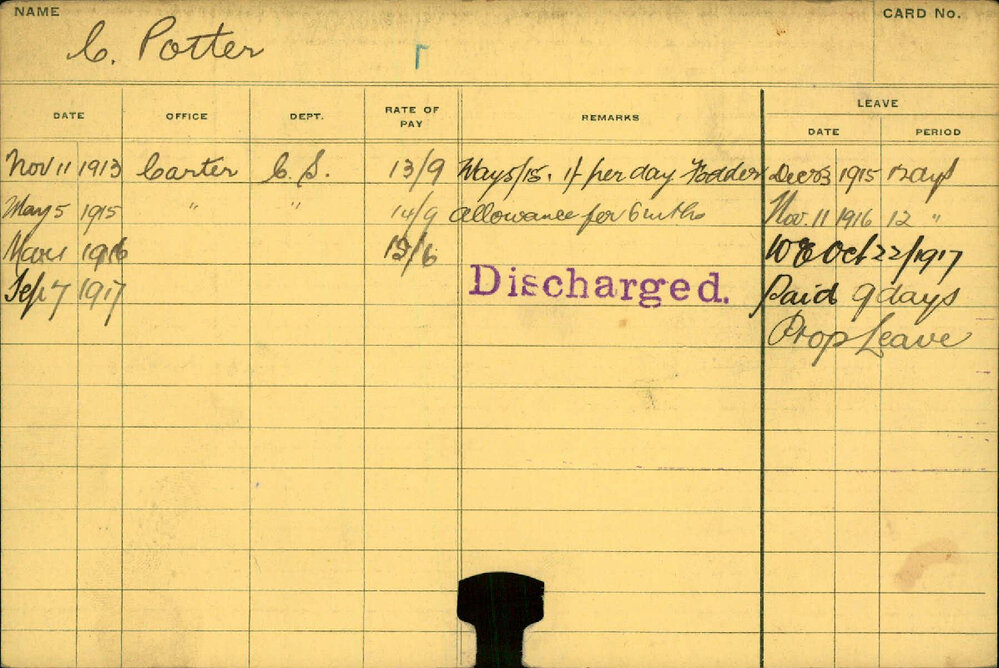 NAME
C. Potter
CARD No.
DATE OFFICE DEPT. RATE OF PAY REMARKS LEAVE
DATE PERIOD
Nov 11 1913 Carter C. S. 13/9 1/- per day Fodder Dec 23 1915 12 days
May 5 1915 " " 14/9 allowance for 6 mths Nov. 11 1916 12 "
1916 15/6 WE Oct 22/1917
Sep 7 1917 Discharged. Paid 9 days
Prop Leave